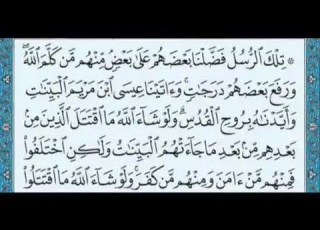 ۞ تِلْكَ ٱلرُّسُلُ فَضَّلْنَا بَعْضَهُمْ عَلَىٰ بَعْضٍ مِّنْهُم مَّن كَلَّمَ ٱللَّهُ
وَرَفَعَ بَعْضَهُمْ دَرَجَٰتٍ وَءَاتَيْنَا عِيسَى ٱبْنَ مَرْيَمَ ٱلْبَيِّنَٰتِ
وَأَيَّدْنَٰهُ بِرُوحِ ٱلْقُدُسِ وَلَوْ شَآءَ ٱللَّهُ مَا ٱقْتَتَلَ ٱلَّذِينَ مِنۢ
بَعْدِهِم مِّنۢ بَعْدِ مَا جَآءَتْهُمُ ٱلْبَيِّنَٰتُ وَلَٰكِنِ ٱخْتَلَفُوا۟
فَمِنْهُم مَّنْ ءَامَنَ وَمِنْهُم مَّن كَفَرَ وَلَوْ شَآءَ ٱللَّهُ مَا ٱقْتَتَلُوا۟